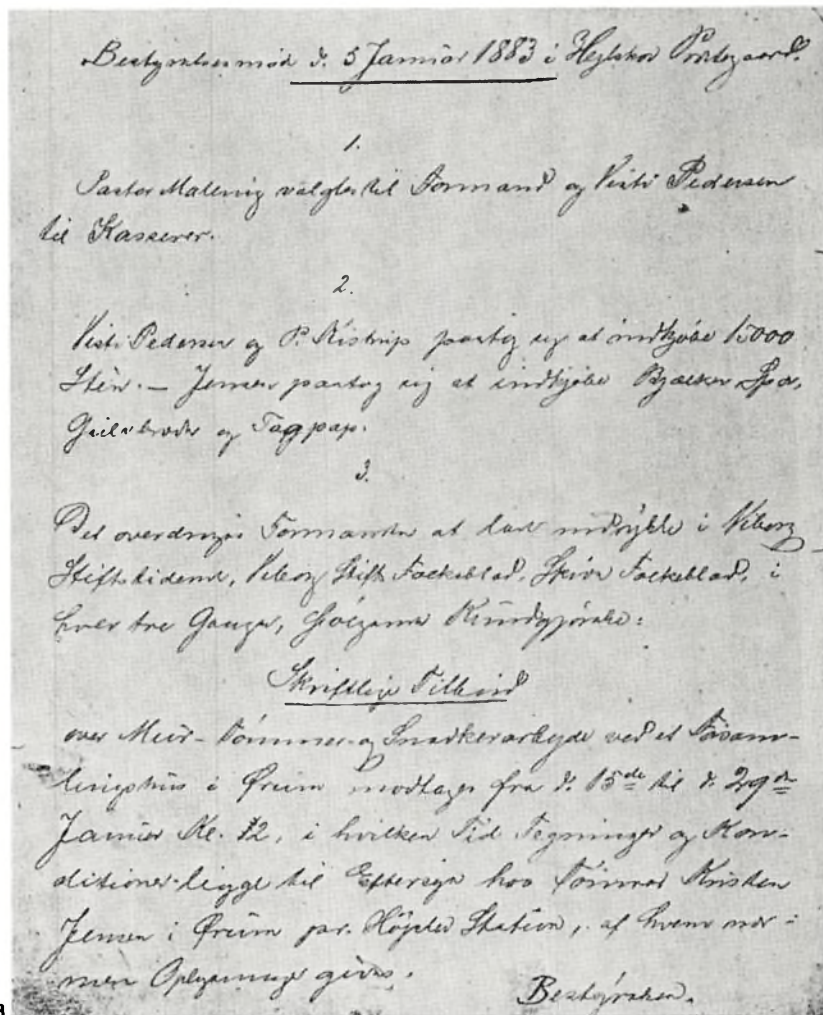 Bestyrelsesmöde d. 5 Januar 1883 i Hejlskov Præstegaard.
1.
Pastor Malling valgtes til Formand og Visti Pedersen
til Kasserer.
2.
Visti Pedersen og P. Ristrup paatog sig at indkjøbe 15000
Sten. — Jensen paatog sig at indkjøbe Bjælker,
Gulvbrædder og Tagpap.
3.
Det overdroges Formanden at lade indrykke i Viborg
Stiftstidende, Viborg Stifts Folkeblad, Skive Folkeblad, i
hver tre Gange, følgende Kundgjørelse:
Skriftlige Tilbud
over Muur- Tömmer- og Snedkerarbejde ved et Forsam-
lingshus i Ørum modtages fra d. 15de til d. 29de
Januar Kl. 12, i hvilken Tid Tegninger og Kon-
ditioner ligge til Eftersyn hos Tömrer Kristen
Jensen i Ørum pr. Højslev Station, af hvem nær-
mere Oplysninger gives.
Bestyrelsen.